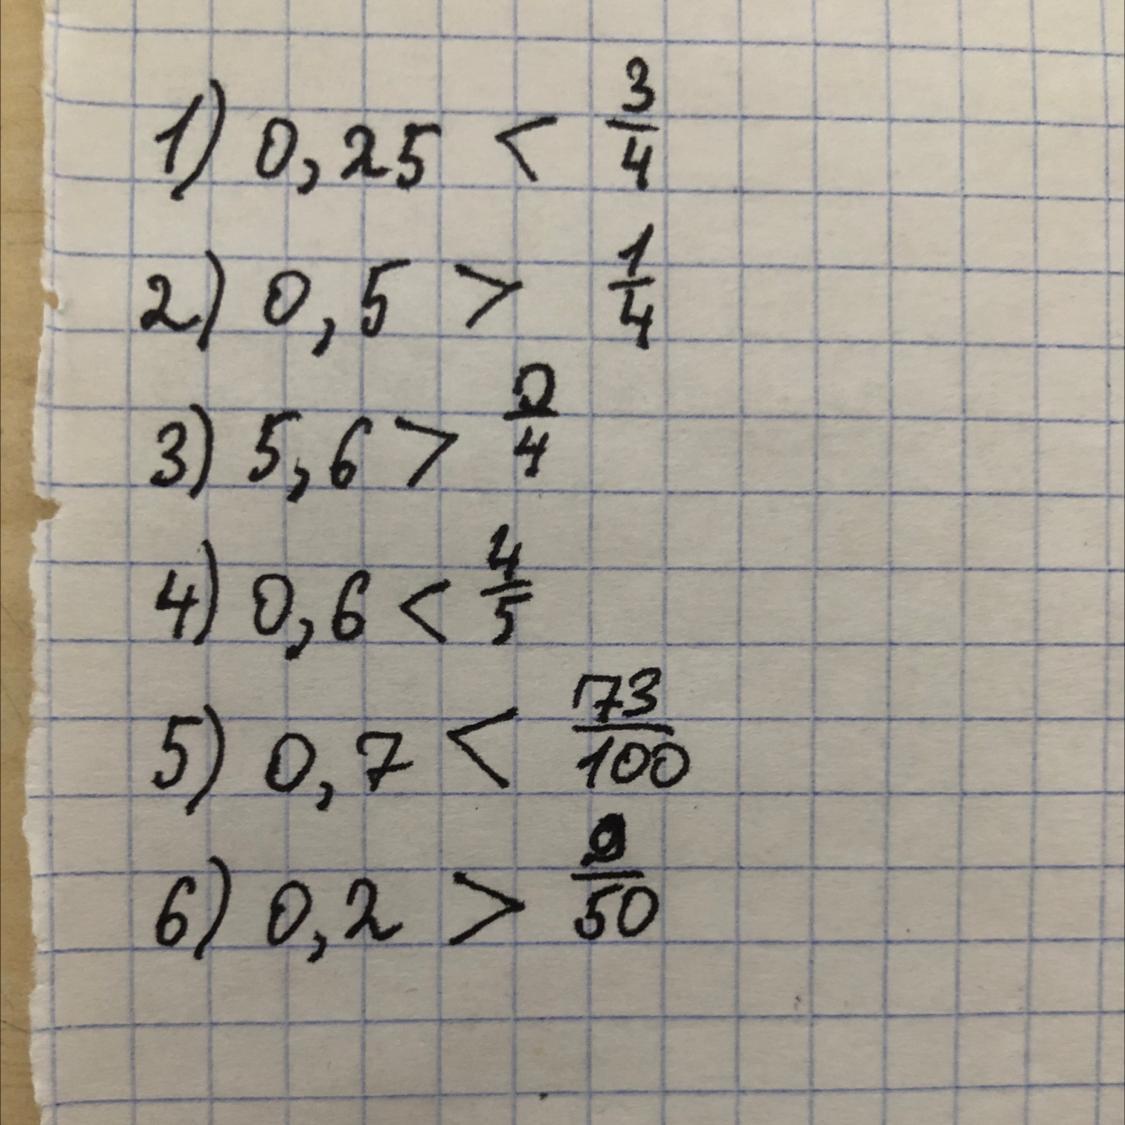 1) 0,25 < 3/4
2) 0,5 > 1/4
3) 5,6 > 0/4
4) 0,6 < 4/5
5) 0,7 < 73/100
6) 0,2 > 9/50